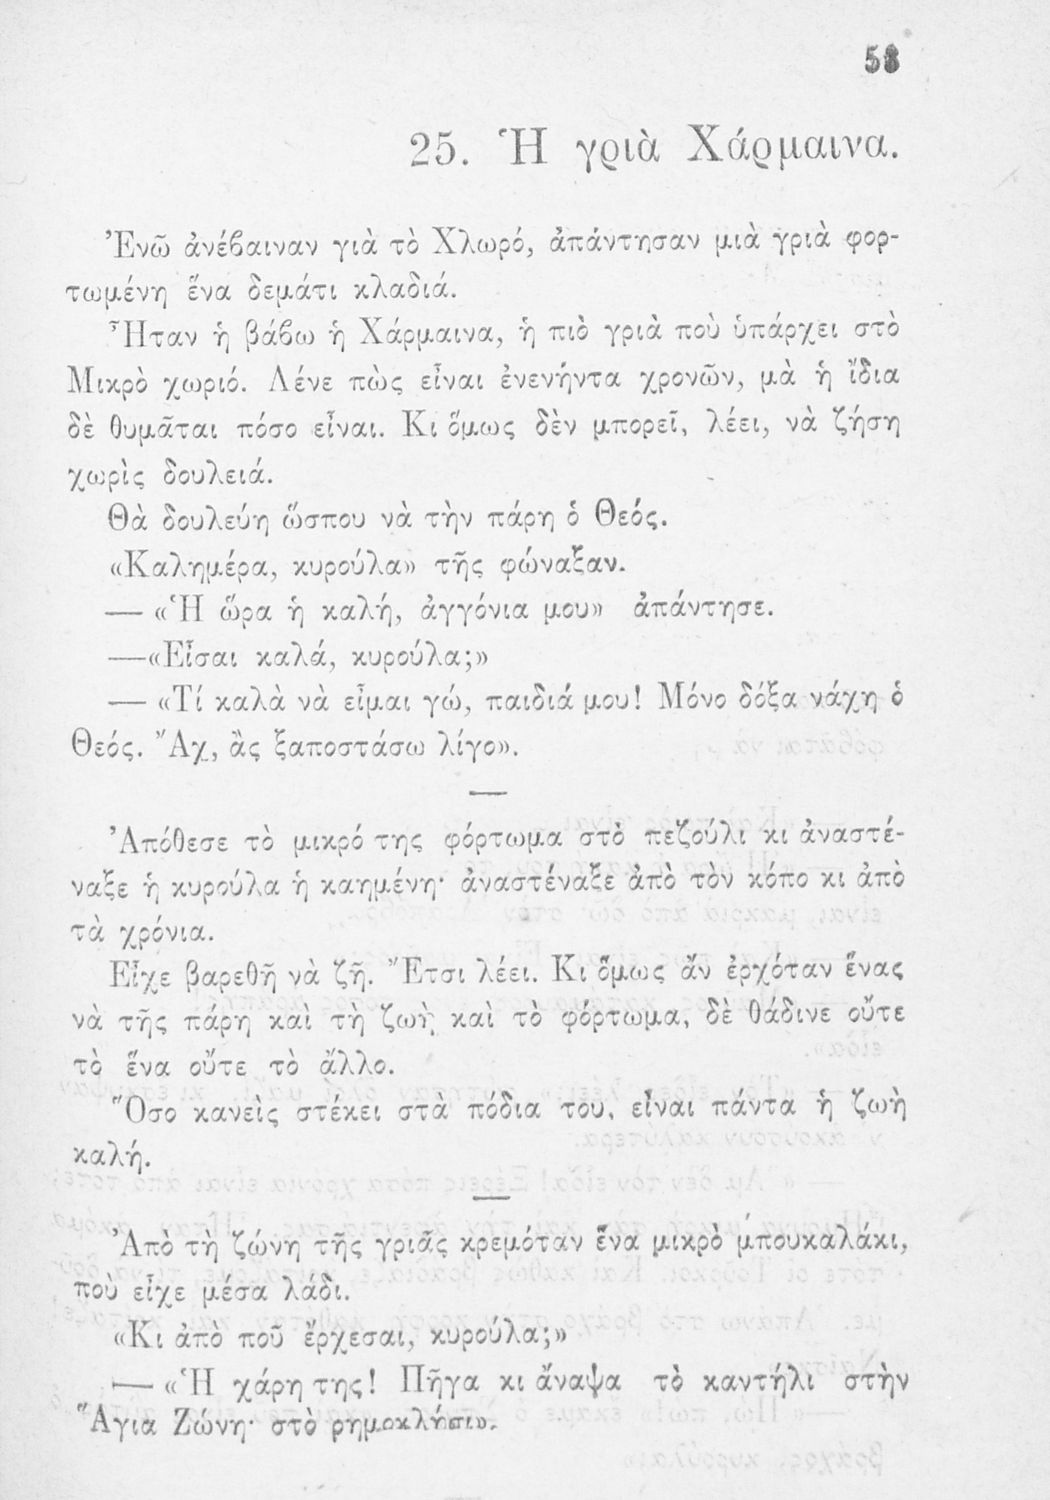 58
25. Ἡ γριὰ Χάρμαινα.
Ἐνῶ ἀνέβαιναν γιὰ τὸ Χλωρό, ἀπάντησαν μιὰ γριὰ φορ-
τωμένη ἕνα δεμάτι κλαδιά.
Ἦταν ἡ βάβω ἡ Χάρμαινα, ἡ πιὸ γριὰ ποὺ ὑπάρχει στὸ
Μικρὸ χωριό. Λένε πὼς εἶναι ἐνενήντα χρονῶν, μὰ ἡ ἴδια
δὲ θυμᾶται πόσο εἶναι. Κι ὅμως δὲν μπορεῖ, λέει, νὰ ζήση
χωρὶς δουλειά.
Θὰ δουλεύη ὥσπου νὰ τὴν πάρη ὁ Θεός.
«Καλημέρα, κυρούλα» τῆς φώναξαν.
— «Ἡ ὥρα ἡ καλή, ἀγγόνια μου» ἀπάντησε.
—«Εἶσαι καλά, κυρούλα;»
— «Τί καλὰ νὰ εἶμαι γώ, παιδιά μου! Μόνο δόξα νάχη ὁ
Θεός. Ἄχ, ἂς ξαποστάσω λίγο».
—
Ἀπόθεσε τὸ μικρό της φόρτωμα στὸ πεζούλι κι ἀναστέ-
ναξε ἡ κυρούλα ἡ καημένη· ἀναστέναξε ἀπὸ τὸν κόπο κι ἀπὸ
τὰ χρόνια.
Εἶχε βαρεθῆ νὰ ζῆ. Ἔτσι λέει. Κι ὅμως ἄν ἐρχόταν ἕνας
νὰ τῆς πάρη καὶ τὴ ζωὴ καὶ τὸ φόρτωμα, δὲ θάδινε οὔτε
τὸ ἕνα οὔτε τὸ ἄλλο.
Ὅσο κανεὶς στέκει στὰ πόδια του, εἶναι πάντα ἡ ζωὴ
καλή.
—
Ἀπὸ τὴ ζώνη τῆς γριᾶς κρεμόταν ἕνα μικρὸ μπουκαλάκι,
ποὺ εἶχε μέσα λάδι.
«Κι ἀπὸ ποῦ ἔρχεσαι, κυρούλα;»
— «Ἡ χάρη της! Πῆγα κι ἄναψα τὸ καντήλι στὴν
Ἅγια Ζώνη· στὸ ρημοκλήσι».